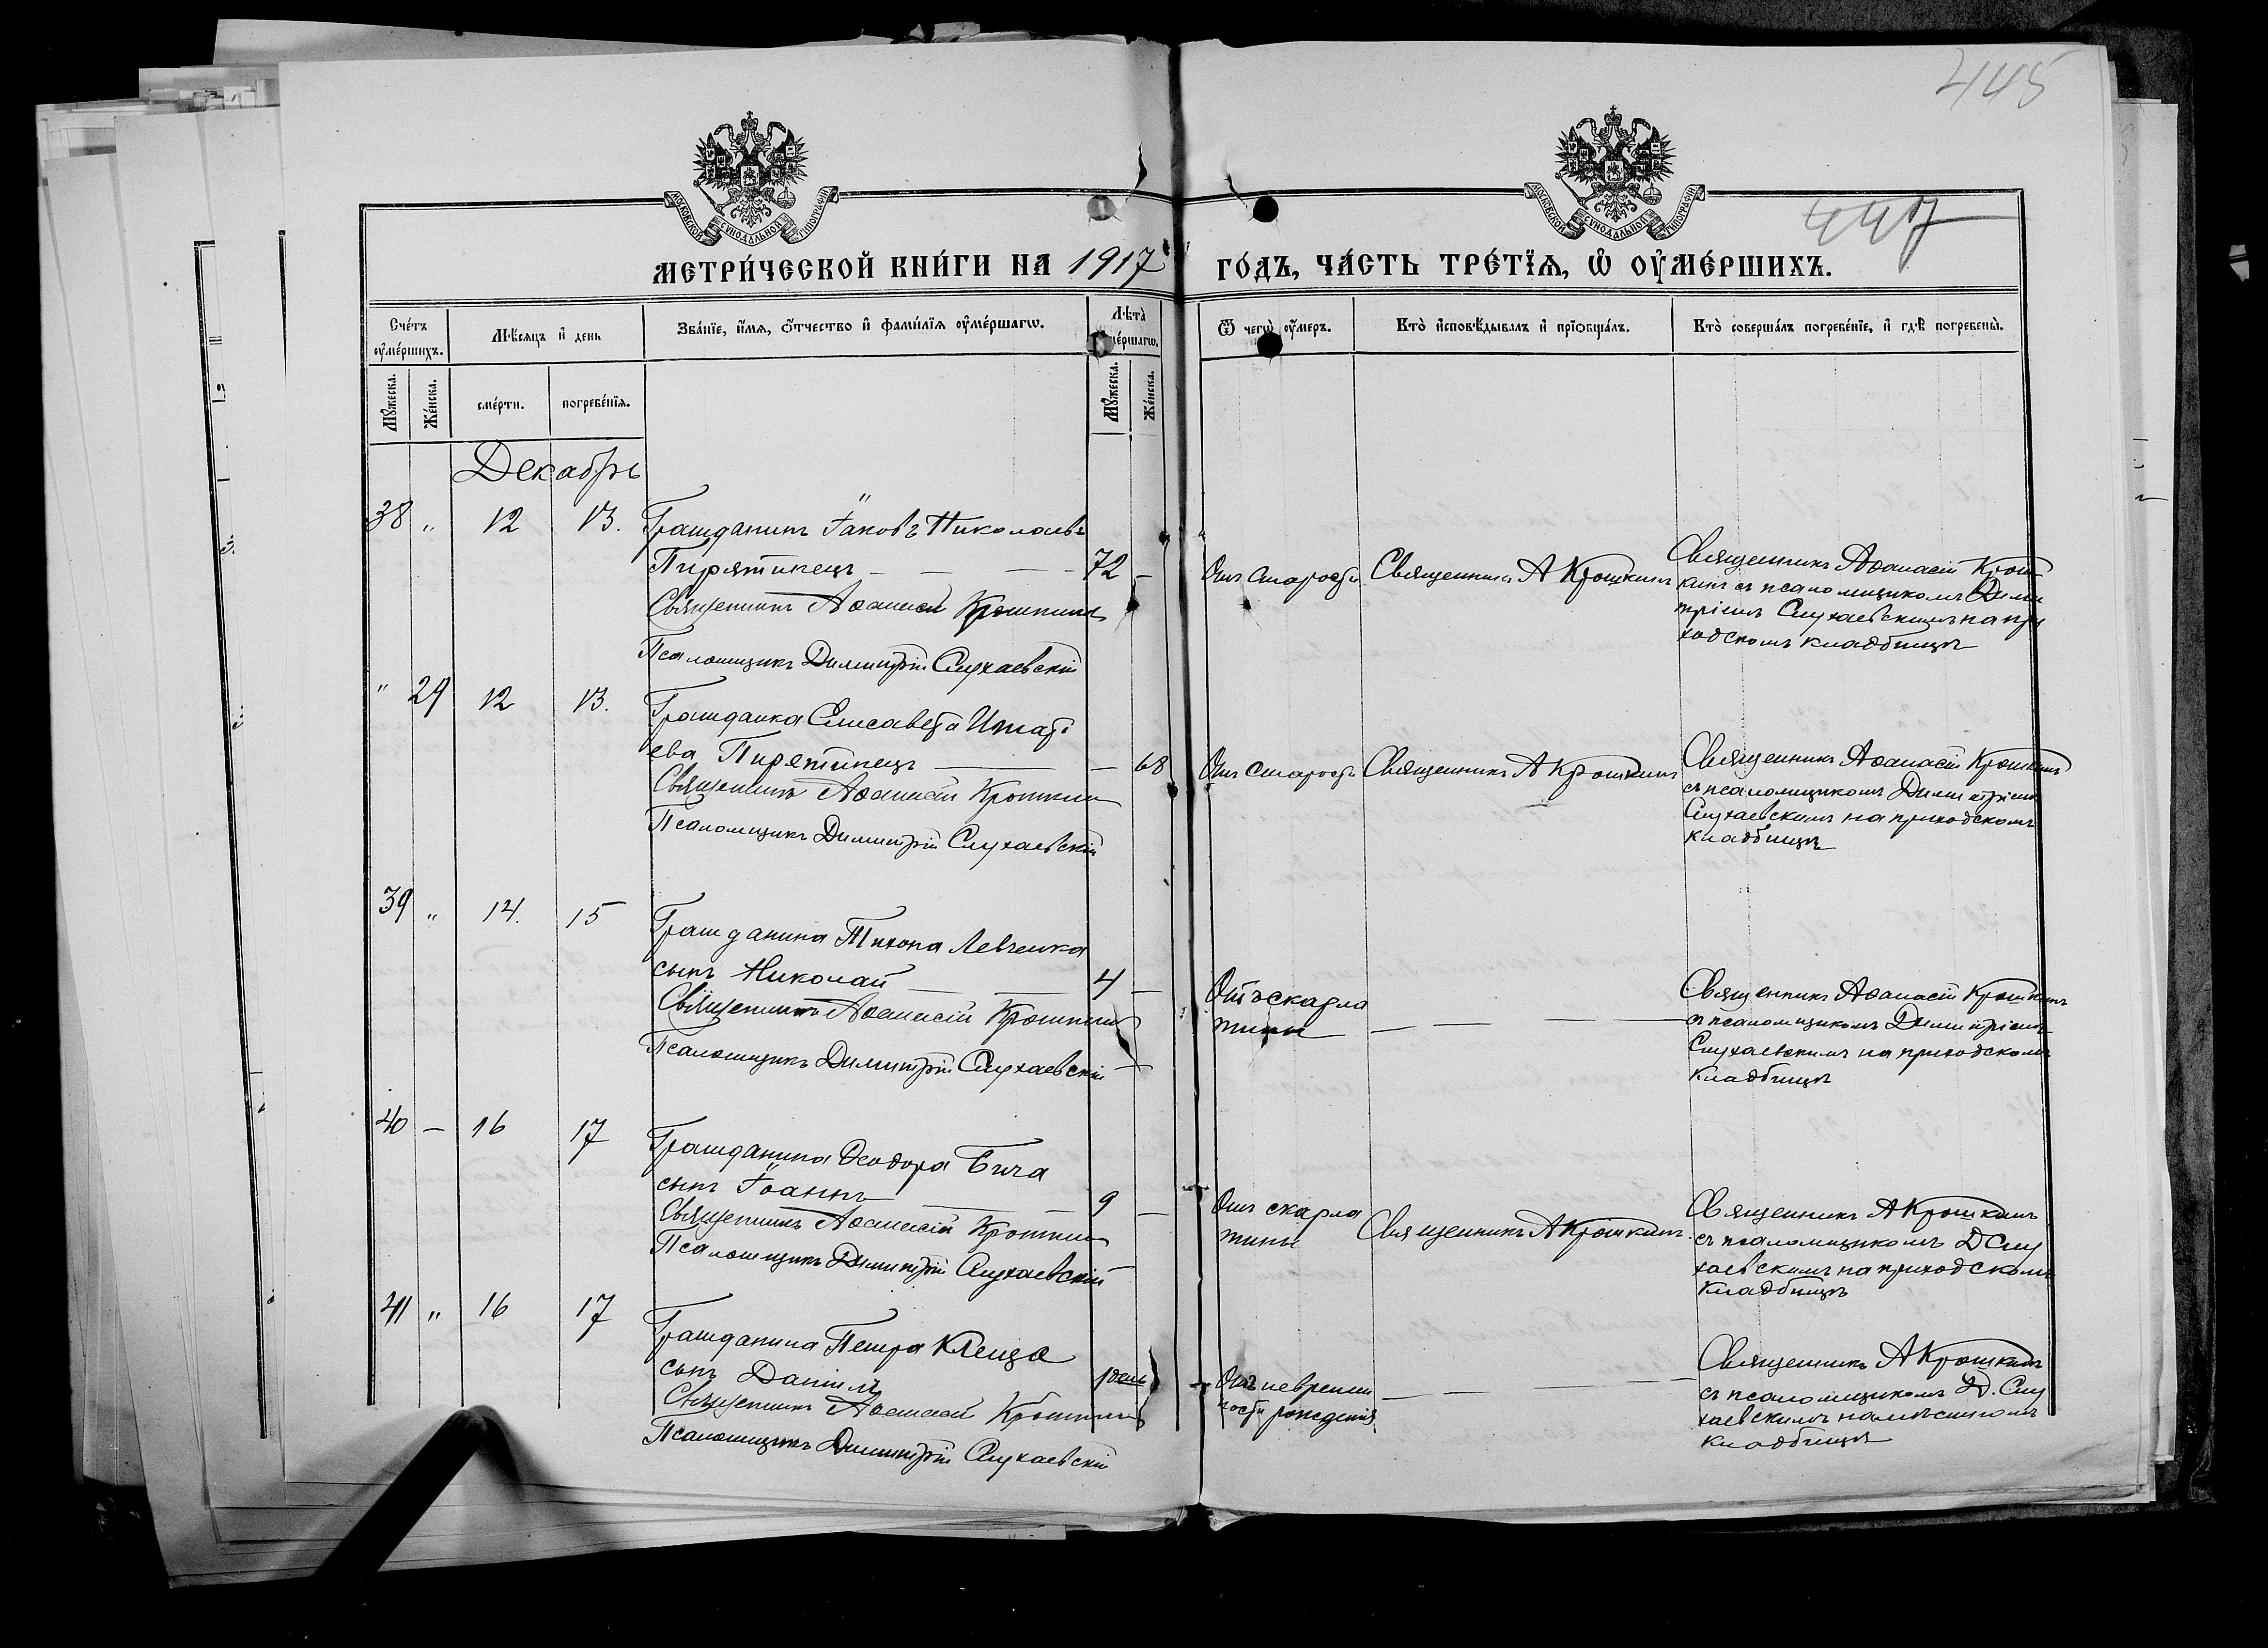 445
447
МОСКОВСКОЙ СѴНОДАЛЬНОЙ ТИПОГРАФІИ
МОСКОВСКОЙ СѴНОДАЛЬНОЙ ТИПОГРАФІИ
МЕТРИ́ЧЕСКОЙ КНИ́ГИ НА 1917
ГО́ДЪ, ЧА́СТЬ ТРЕ́ТЇѦ, Ѡ҆ ОУ҆МЕ́РШИХЪ.
Сче́тъ оу҆ме́ршихъ.
Мѣ́сяцъ и҆ день
Зва́нїе, и҆́мѧ, ѻ҆́тчество и҆ фамилїѧ оу҆ме́ршагѡ.
Лѣта̀ ме́ршагѡ.
Ѿ чегѡ̀ оу҆́меръ.
Кто̀ и҆сповѣ́дывалъ и҆ прїѡбща́лъ.
Кто̀ соверша́лъ погребе́нїе, и҆ гдѣ̀ погребены̀.
Мꙋ́жеска.
Же́нска.
сме́рти.
погребе́нїѧ.
Мꙋ́жеска.
Же́нска.
Декабрь
38 " 12 13. Гражданинъ Іаковъ Николаевъ
Пирятинецъ — — — 72 —
Священникъ Аѳанасій Крошкинъ
Псаломщикъ Димитрій Слухаевскій
Отъ старости
Священникъ А Крошкинъ
Священникъ Аѳанасій Крош
кинъ съ псаломщикомъ Дими
тріемъ Слухаевскимъ на при
ходскомъ кладбищѣ
" 29 12 13. Гражданка Елисавета Игнаті
ева Пирятинецъ — — 68
Священникъ Аѳанасій Крошкин
Псаломщикъ Димитрій Слухаевскій
Отъ старости
Священникъ А Крошкинъ
Священникъ Аѳанасій Крошкинъ
съ псаломщикомъ Димитріемъ
Слухаевскимъ на приходскомъ
кладбищѣ
39 " 14. 15 Гражданина Тихона Левченка
сынъ Николай — — 4 —
Священникъ Аѳанасій Крошкинъ
Псаломщикъ Димитрій Слухаевскій
Отъ скарла
тины — — — —
Священникъ Аѳанасій Крошкинъ
съ псаломщикомъ Димитріемъ
Слухаевскимъ на приходскомъ
кладбищѣ
40 — 16 17 Гражданина Ѳеодора Бича
сынъ Іоаннъ — — 9 —
Священникъ Аѳанасій Крошкин
Псаломщикъ Димитрій Слухаевскій
Отъ скарла
тины
Священникъ А Крошкинъ.
Священникъ А Крошкинъ
съ псаломщикомъ Д Слу
хаевскимъ на приходскомъ
кладбищѣ
41 " 16 17 Гражданина Петра Клеща
сынъ Даніилъ 1 день
Священникъ Аѳанасій Крошкинъ
Псаломщикъ Димитрій Слухаевскій
Отъ неврѣмен
ности рожденія — — — —
Священникъ А Крошкинъ
съ псаломщикомъ Д. Слу
хаевскимъ на мѣстномъ
кладбищѣ